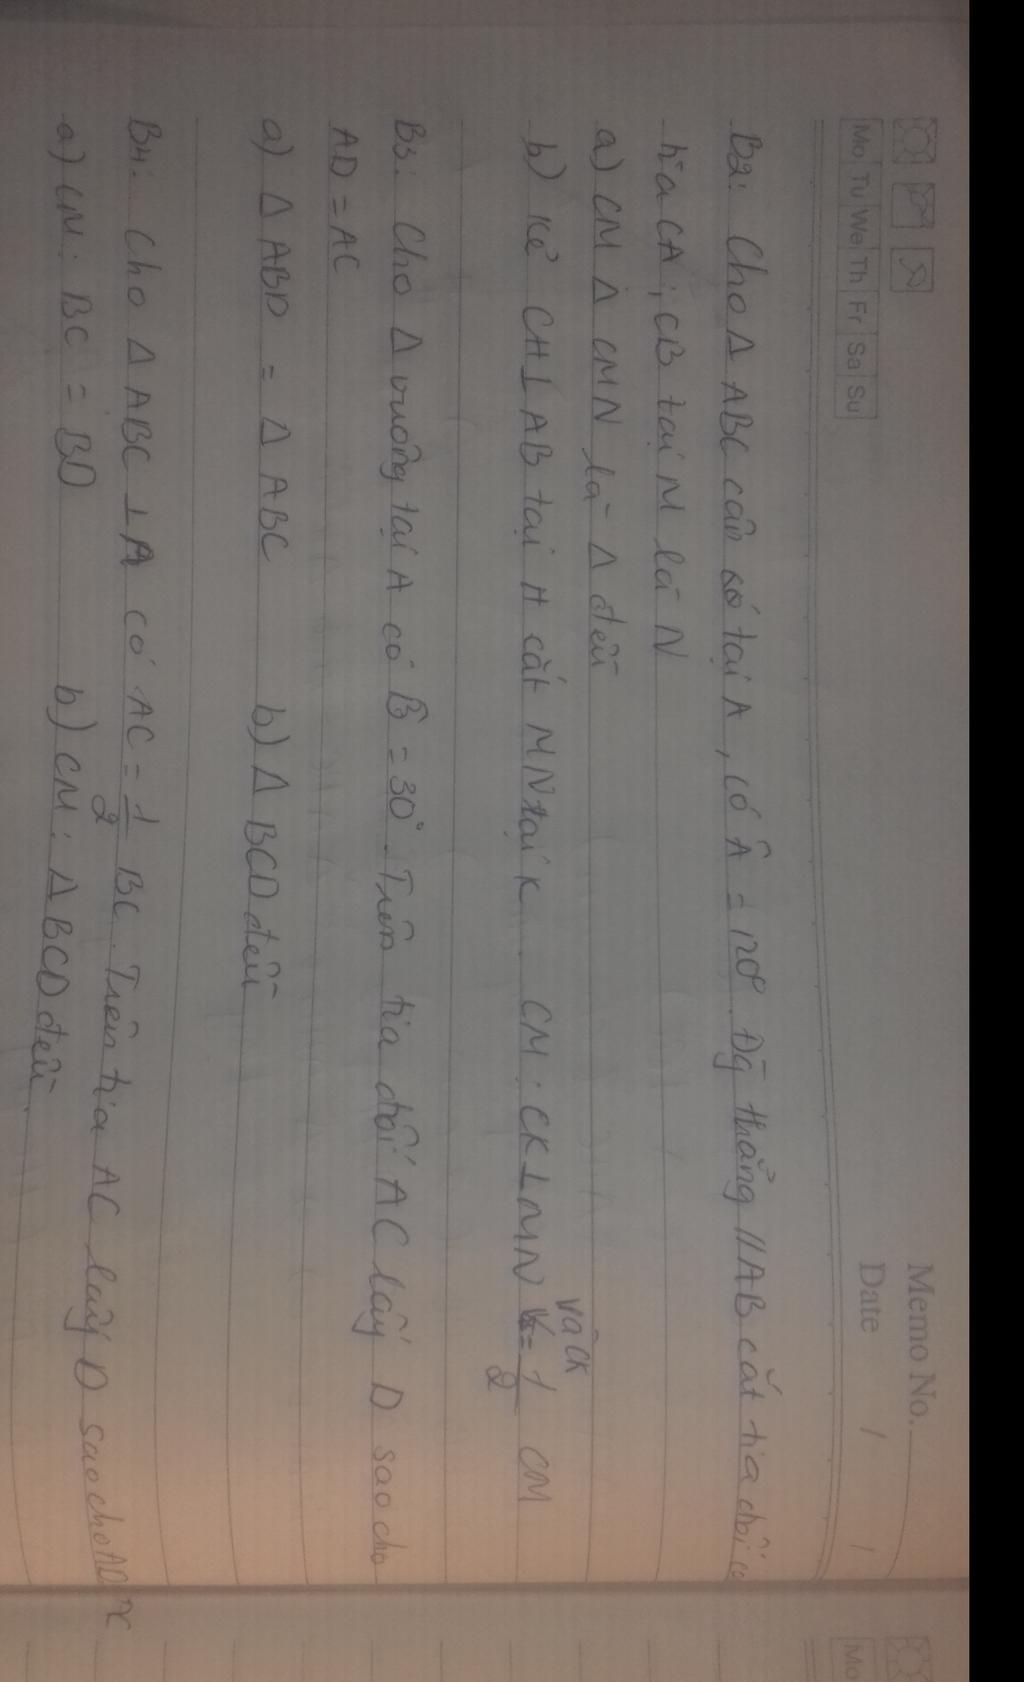 Memo No.
Mo Tu We Th Fr Sa Su
Date / /
B2: Cho Δ ABC cân có tại A, có Â = 120°. Đg thẳng // AB cắt tia đối củ
tia CA; CB tại M là N
a) CM Δ CMN là Δ đều
b) Kẻ CH ⊥ AB tại H cắt MN tại K. CM: CK ⊥ MN và CK = 1/2 CM
B3: Cho Δ vuông tại A có B̂ = 30°. Trên tia đối AC lấy D sao cho
AD = AC
a) Δ ABD = Δ ABC b) Δ BCD đều
B4: Cho Δ ABC ⊥ A có AC = 1/2 BC. Trên tia AC lấy D sao cho AD
a) CM: BC = BD b) CM: Δ BCD đều
Mo